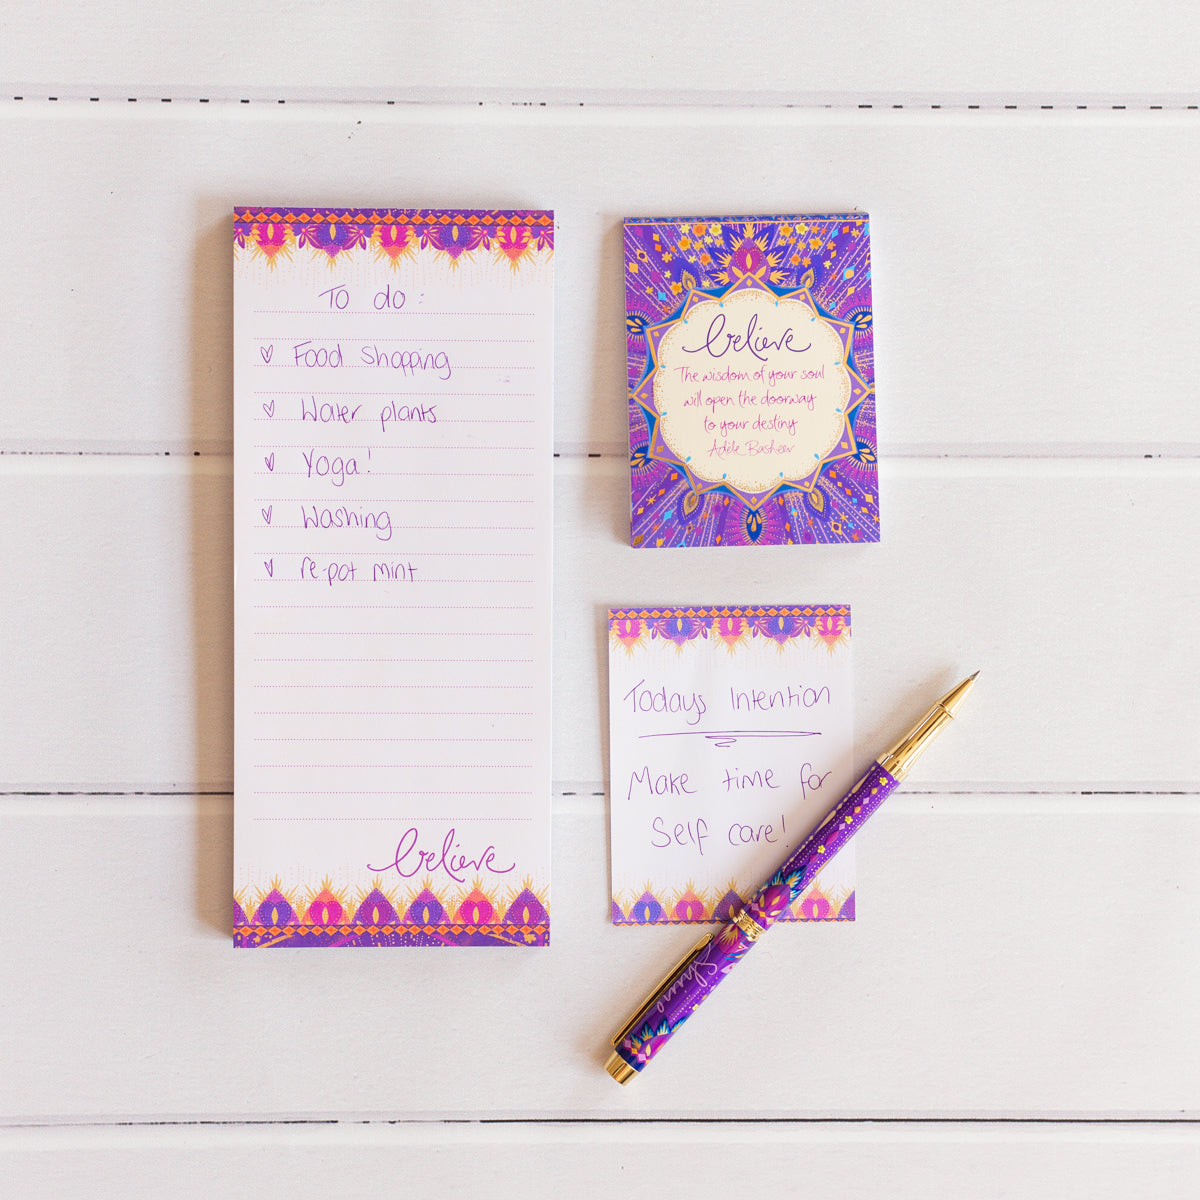 To do :
Food Shopping
Water plants
Yoga!
Washing
re-pot mint
believe
believe
The wisdom of your soul
will open the doorway
to your destiny
Adèle Basheer
Todays Intention
Make time for
Self care!
Shine